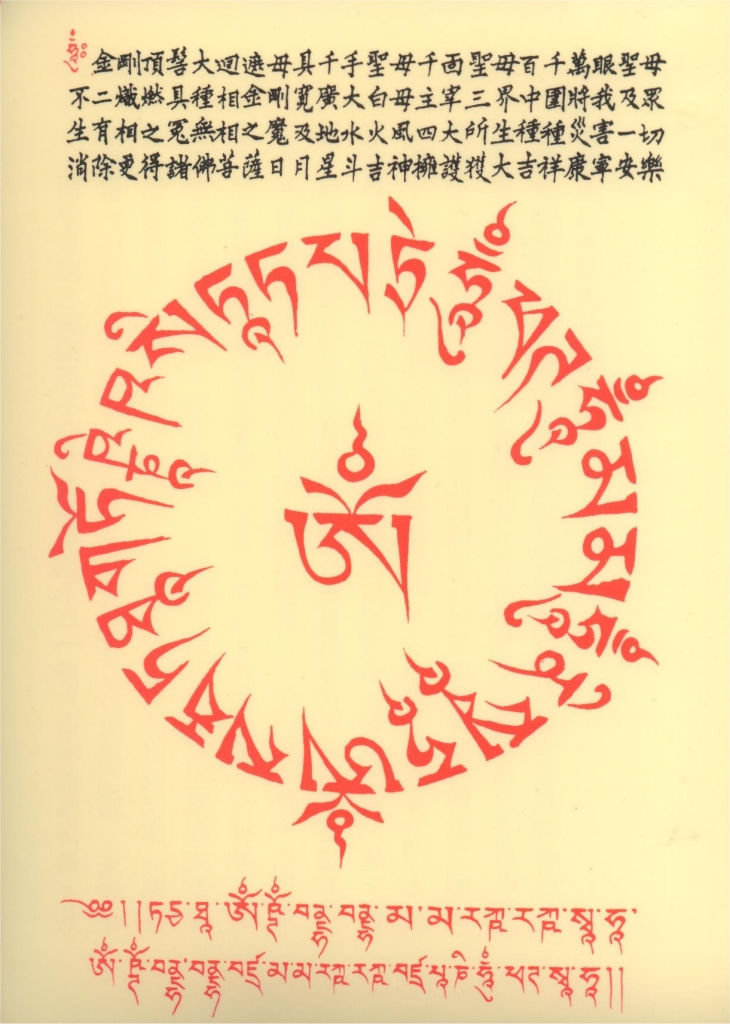 ཧཱུྃ༔ 金剛頂髻大迴遮母具千手聖母千面聖母百千萬眼聖母
不二熾燃具種相金剛寬廣大白母主宰三界中圍將我及眾
生有相之冤無相之魔及地水火風四大所生種種災害一切
消除更得諸佛菩薩日月星斗吉神擁護獲大吉祥康寧安樂
ཨོཾ
ཨོཾ ས རྦ ཏ ཐཱ ག ཏོ ཥྞཱི ཥ སི ཏ ཏཱ པ ཏྲེ ཧཱུྃ ཕཊ ཧཱུྃ མ མ ཧཱུྃ ནི སྭཱ ཧཱ
༄༅།།ཏདྱ་ཐཱ་ཨོཾ་ཥྚྲོཾ་བནྡྷ་བནྡྷ་མ་མ་རཀྵ་རཀྵ་སྭཱ་ཧཱ་
ཨོཾ་ཥྚྲོཾ་བནྡྷ་བནྡྷ་བཛྲ་མ་མ་རཀྵ་རཀྵ་བཛྲ་པཱ་ཎི་ཧཱུྃ་ཕཊ་སྭཱ་ཧཱ།།